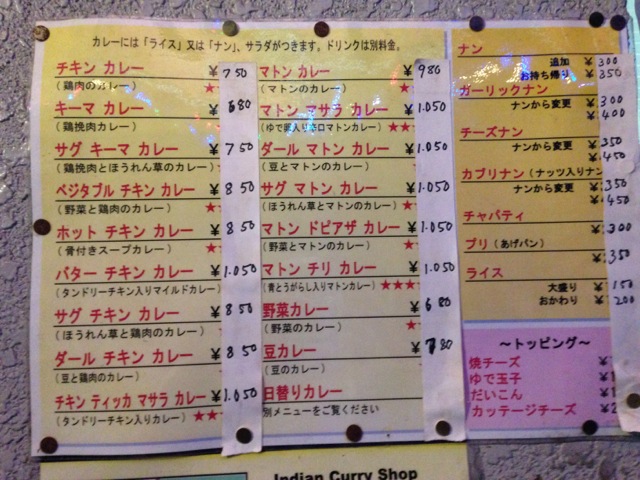 カレーには「ライス」又は「ナン」、サラダがつきます。ドリンクは別料金。
チキン カレー ¥750
(鶏肉のカレー) ★
キーマ カレー ¥680
(鶏挽肉カレー)
サグ キーマ カレー ¥750
(鶏挽肉とほうれん草のカレー)
ベジタブル チキン カレー ¥850
(野菜と鶏肉のカレー) ★
ホット チキン カレー ¥850
(骨付きスープカレー) ★
バター チキン カレー ¥1.050
(タンドリーチキン入りマイルドカレー)
サグ チキン カレー ¥850
(ほうれん草と鶏肉のカレー)
ダール チキン カレー ¥850
(豆と鶏肉のカレー) ★
チキン ティッカ マサラ カレー ¥1.050
(タンドリーチキン入りカレー) ★★
マトン カレー ¥980
(マトンのカレー) ★
マトン マサラ カレー ¥1.050
(ゆで卵入り辛口マトンカレー) ★★
ダール マトン カレー ¥1.050
(豆とマトンのカレー) ★
サグ マトン カレー ¥1.050
(ほうれん草とマトンのカレー) ★
マトン ドピアザ カレー ¥1.050
(野菜とマトンのカレー) ★
マトン チリ カレー ¥1.050
(青とうがらし入りマトンカレー) ★★★
野菜カレー ¥680
(野菜のカレー) ★
豆カレー ¥780
(豆のカレー) ★
日替りカレー
別メニューをご覧ください
ナン ¥300
追加 ¥350
お持ち帰り ¥
ガーリックナン ¥300
ナンから変更 ¥400
チーズナン ¥350
ナンから変更 ¥450
カブリナン (ナッツ入りナン ¥350
ナンから変更 ¥450
チャパティ ¥300
プリ (あげパン) ¥350
ライス
大盛り ¥150
おかわり ¥200
〜トッピング〜
焼チーズ ¥
ゆで玉子 ¥
だいこん ¥
カッテージチーズ ¥2
Indian Curry Shop